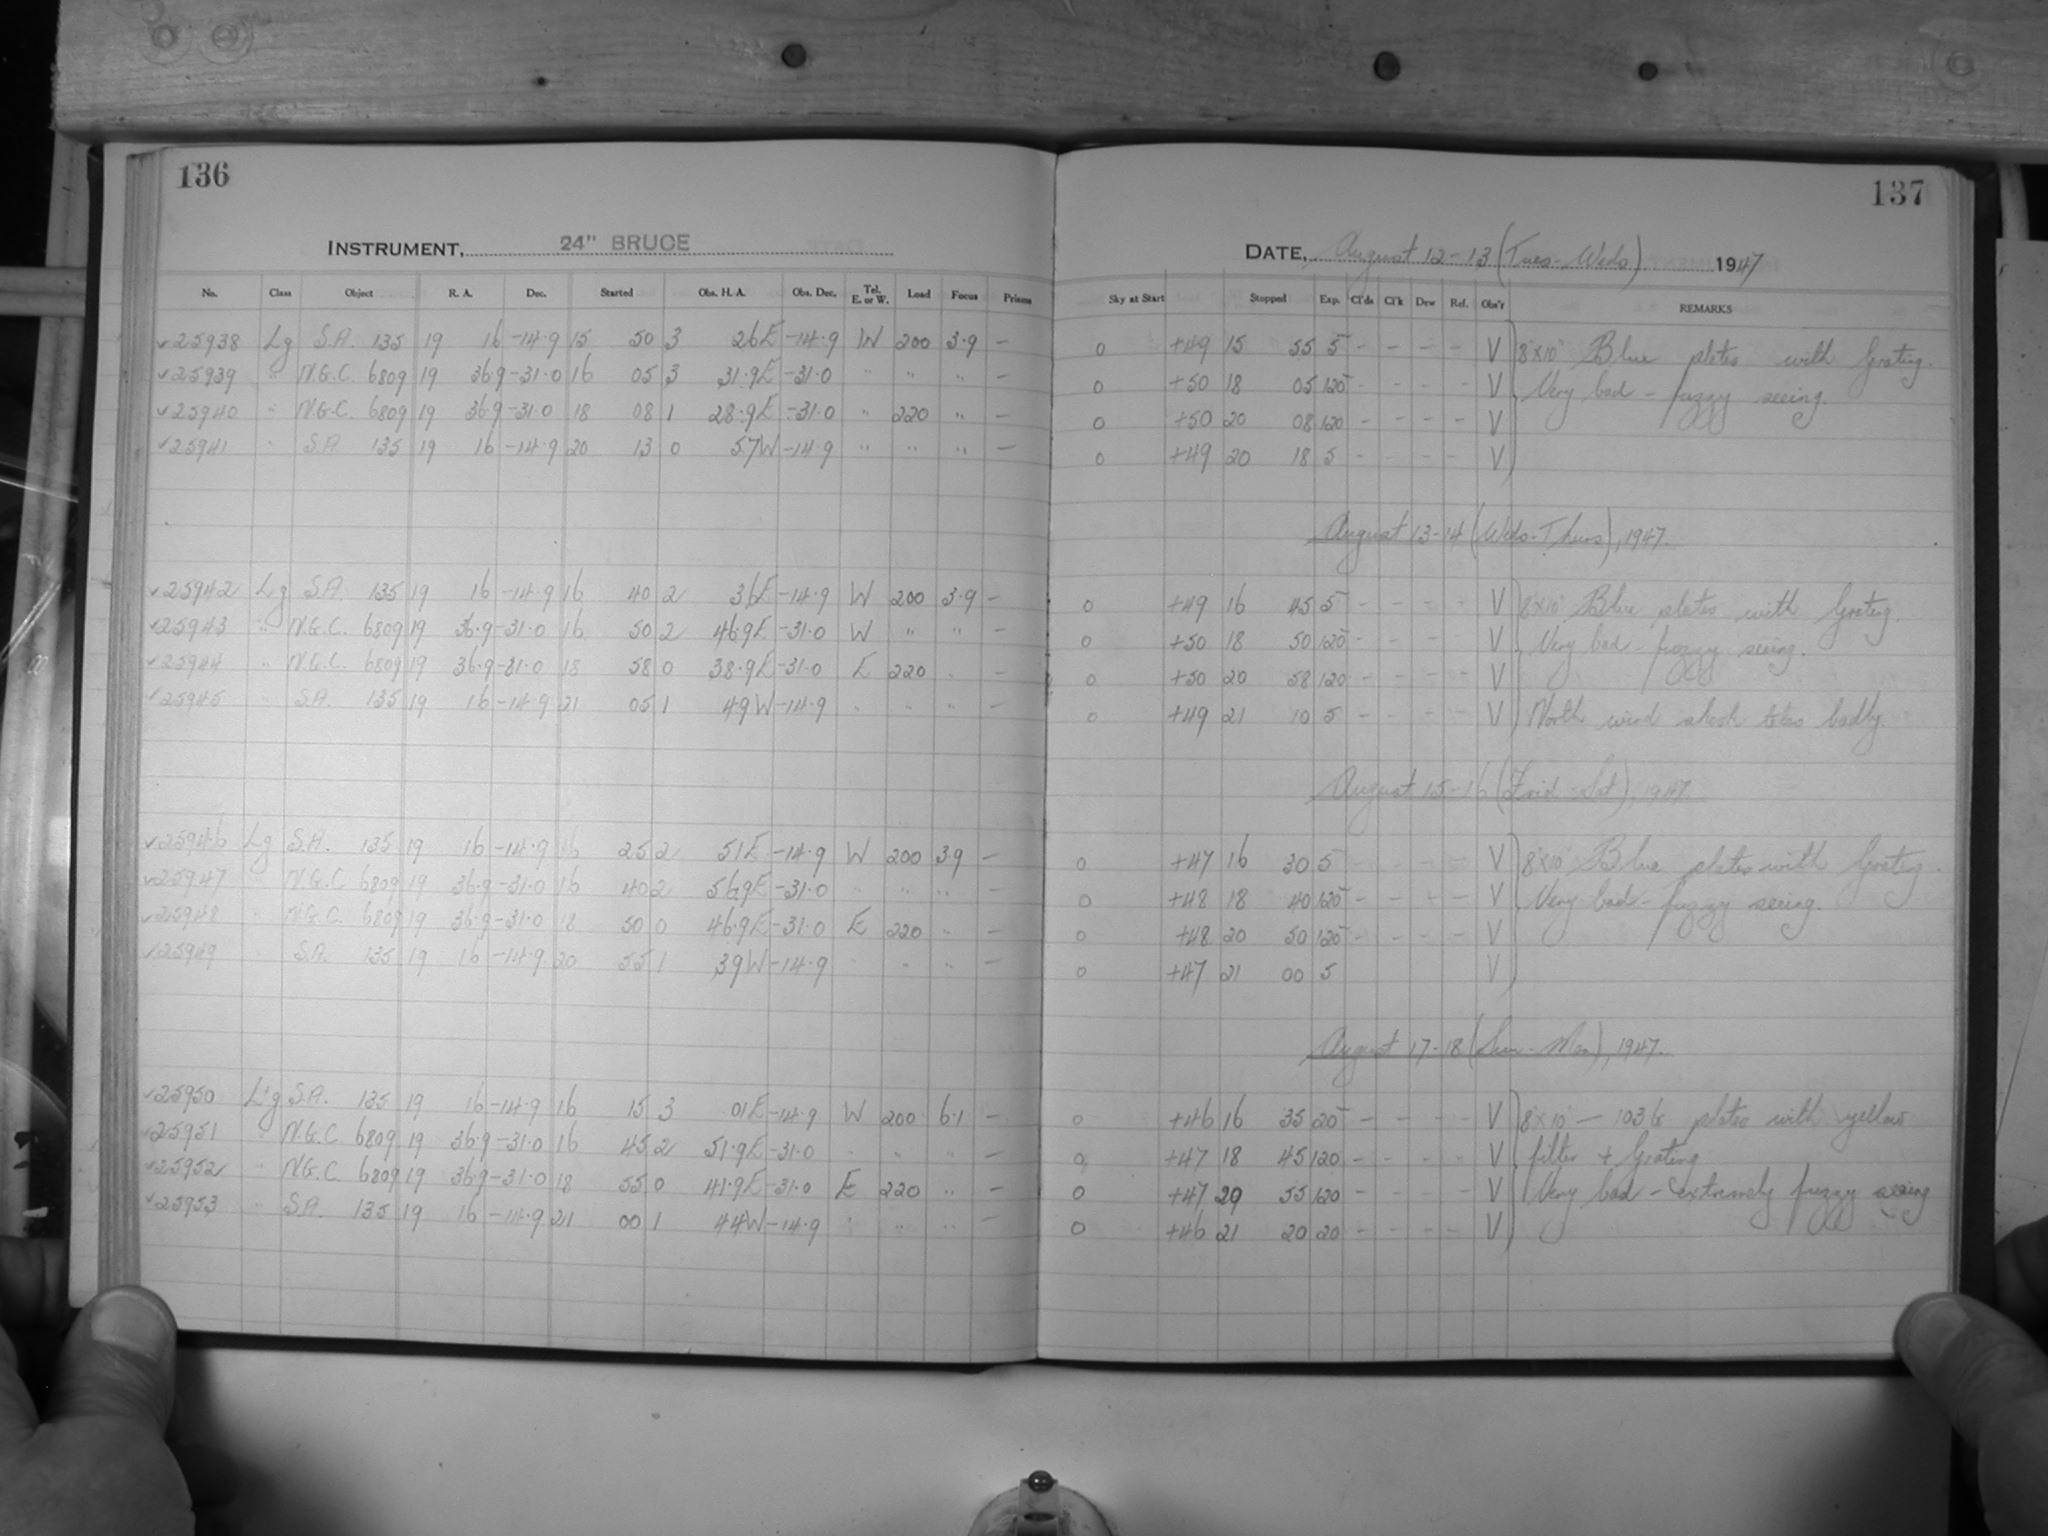 136
INSTRUMENT, 24" BRUCE
No. Class Object R. A. Dec. Started Obs. H. A. Obs. Dec. Tel. E. or W. Load Focus Prisms
✓25938 Lg S.A. 135 19 16 -14.9 15 50 3 26E -14.9 W 200 3.9 -
✓25939 " N.G.C. 6809 19 36.9 -31.0 16 05 3 31.9E -31.0 " " " -
✓25940 " N.G.C. 6809 19 36.9 -31.0 18 08 1 28.9E -31.0 " 220 " -
✓25941 " S.A. 135 19 16 -14.9 20 13 0 57W -14.9 " " " -
✓25942 Lg S.A. 135 19 16 -14.9 16 40 2 36E -14.9 W 200 3.9 -
✓25943 " N.G.C. 6809 19 36.9 -31.0 16 50 2 46.9E -31.0 W " " -
✓25944 " N.G.C. 6809 19 36.9 -31.0 18 58 0 38.9E -31.0 E 220 " -
✓25945 " S.A. 135 19 16 -14.9 21 05 1 49W -14.9 " " " -
✓25946 Lg S.A. 135 19 16 -14.9 16 25 2 51E -14.9 W 200 3.9 -
✓25947 " N.G.C. 6809 19 36.9 -31.0 16 40 2 56.9E -31.0 " " " -
✓25948 " N.G.C. 6809 19 36.9 -31.0 18 50 0 46.9E -31.0 E 220 " -
✓25949 " S.A. 135 19 16 -14.9 20 55 1 39W -14.9 " " " -
✓25950 Lg S.A. 135 19 16 -14.9 16 15 3 01E -14.9 W 200 6.1 -
✓25951 " N.G.C. 6809 19 36.9 -31.0 16 45 2 51.9E -31.0 " " " -
✓25952 " N.G.C. 6809 19 36.9 -31.0 18 55 0 41.9E -31.0 E 220 " -
✓25953 " S.A. 135 19 16 -14.9 21 00 1 44W -14.9 " " " -
137
DATE, August 12-13 (Tues-Weds) 1947
Sky at Start Stopped Exp. Cl'ds Cl'k Dew Ref. Obs'r REMARKS
0 +49 15 55 5 - - - - V 8"x10" Blue plates with Grating.
0 +50 18 05 120 - - - - V Very bad - fuzzy seeing.
0 +50 20 08 120 - - - - V
0 +49 20 18 5 - - - - V
August 13-14 (Weds-Thurs), 1947.
0 +49 16 45 5 - - - - V 8"x10" Blue plates with Grating.
0 +50 18 50 120 - - - - V Very bad - fuzzy seeing.
0 +50 20 58 120 - - - - V
0 +49 21 10 5 - - - - V North wind badly
August 15-16 (Frid-Sat), 1947.
0 +47 16 30 5 - - - - V 8"x10" Blue plates with Grating.
0 +48 18 40 120 - - - - V Very bad - fuzzy seeing.
0 +48 20 50 120 - - - - V
0 +47 21 00 5 V
August 17-18 (Sun-Mon), 1947.
0 +46 16 35 20 - - - - V 8"x10" - 103G plates with yellow
0 +47 18 45 120 - - - - V filter + Grating
0 +47 20 55 120 - - - - V Very bad - extremely fuzzy seeing
0 +46 21 20 20 - - - - V